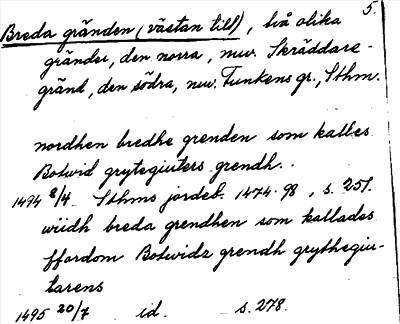 5.
Breda gränden (västan till), två olika
gränder, den norra, nuv. Skräddare-
gränd, den södra, nuv. Funkens gr., Sthm.
nordhen bredhe grenden som kalles
Botwid grytegiuters grendh.
1494 8/4 Sthms jordeb. 1474-98, s. 257.
wiidh breda grendhen som kallades
ffordom Botwidz grendh grythegiu-
tarens
1495 20/7 id. s. 278.